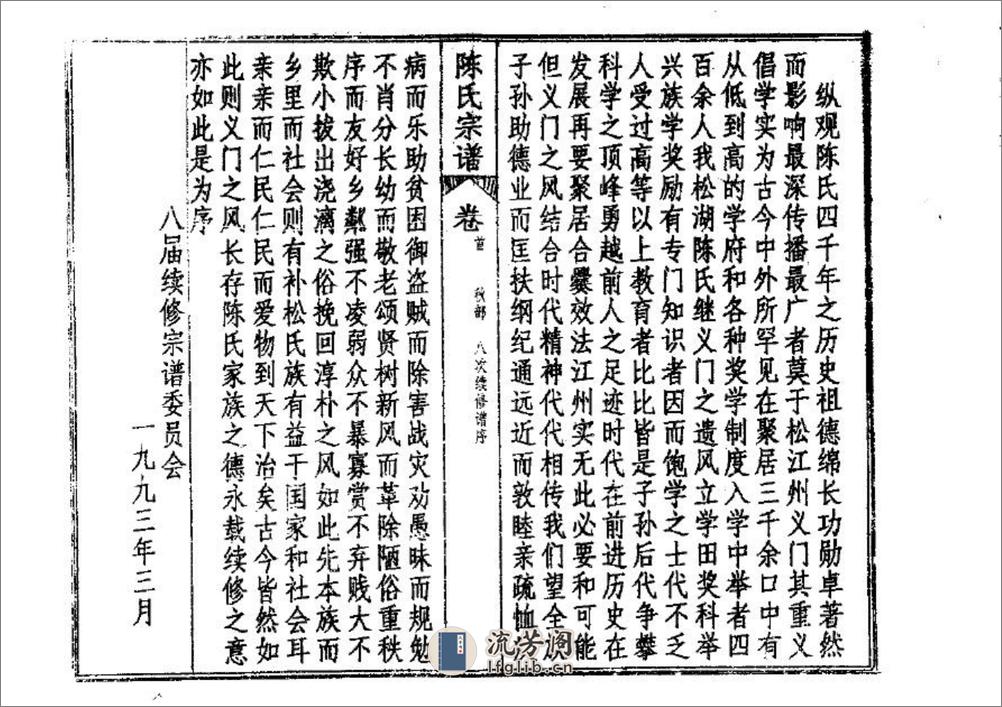 纵观陈氏四千年之历史祖德绵长功勋卓著然
而影响最深传播最广者莫于松江州义门其重义
倡学实为古今中外所罕见在聚居三千余口中有
从低到高的学府和各种奖学制度入学中举者四
百余人我松湖陈氏继义门之遗风立学田奖科举
兴族学奖励有专门知识者因而饱学之士代不乏
人受过高等以上教育者比比皆是子孙后代争攀
科学之顶峰勇越前人之足迹时代在前进历史在
发展再要聚居合爨效法江州实无此必要和可能
但义门之风结合时代精神代代相传我们望全族
子孙助德业而匡扶纲纪通远近而敦睦亲疏恤
陈氏宗谱
卷首 秩部 八次续修谱序
病而乐助贫困御盗贼而除害战灾劝愚昧而规勉
不肖分长幼而敬老颂贤树新风而革除陋俗重秩
序而友好乡鄰强不凌弱众不暴寡赏不弃贱大不
欺小拔出浇漓之俗挽回淳朴之风如此先本族而
乡里而社会则有补松氏族有益于国家和社会耳
亲亲而仁民仁民而爱物到天下治矣古今皆然如
此则义门之风长存陈氏家族之德永载续修之意
亦如此是为序
八届续修宗谱委员会
一九九三年三月
流芳阁
lfglib.cn